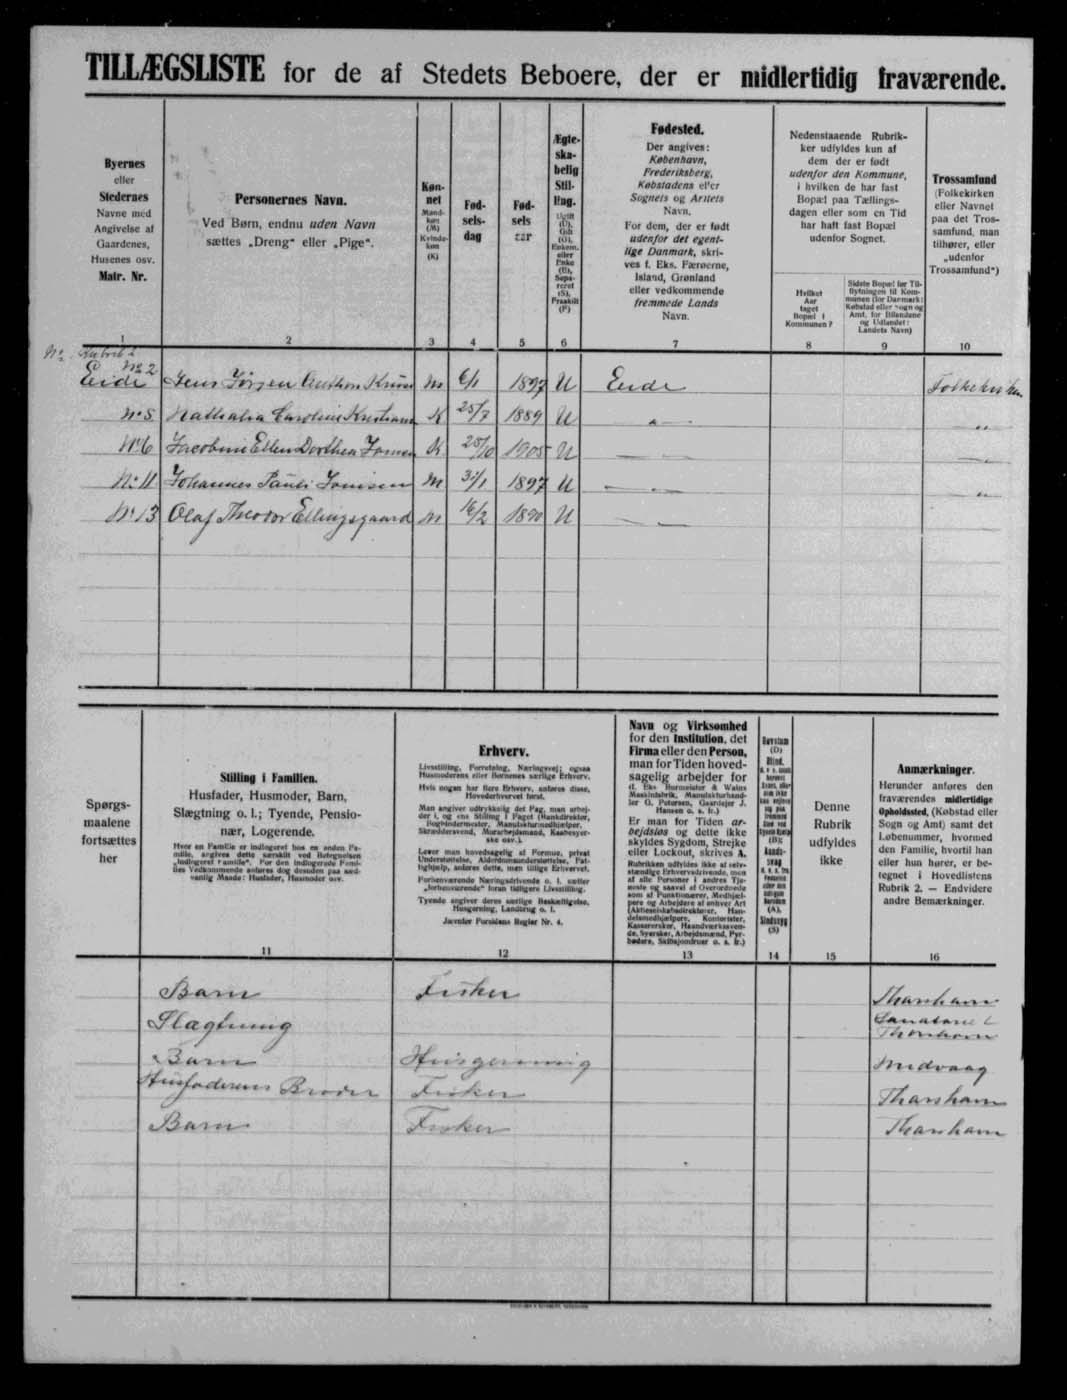 TILLÆGSLISTE for de af Stedets Beboere, der er midlertidig fraværende.
Byernes
eller
Stedernes
Navne med
Angivelse af
Gaardenes,
Husenes osv.
Matr. Nr.
1
Personernes Navn.
Ved Børn, endnu uden Navn
sættes „Dreng“ eller „Pige“.
2
Køn-
net
Mand-
køn
(M)
Kvinde-
køn
(K)
3
Fød-
sels-
dag
4
Fød-
sels
aar
5
Ægte-
ska-
belig
Stil-
ling.
Ugift
(U),
Gift
(G),
Enkem.
eller
Enke
(E),
Sepa-
reret
(S),
Fraskilt
(F)
6
Fødested.
Der angives:
København,
Frederiksberg,
Købstadens eller
Sognets og Amtets
Navn.
For dem, der er født
udenfor det egent-
lige Danmark, skri-
ves f. Eks. Færøerne,
Island, Grønland
eller vedkommende
fremmede Lands
Navn.
7
Nedenstaaende Rubrik-
ker udfyldes kun af
dem der er født
udenfor den Kommune,
i hvilken de har fast
Bopæl paa Tællings-
dagen eller som en Tid
har haft fast Bopæl
udenfor Sognet.
Hvilket
Aar
taget
Bopæl i
Kommunen?
8
Sidste Bopæl før Til-
flytningen til Kom-
munen (for Danmark:
Købstad eller Sogn og
Amt, for Bilandene
og Udlandet:
Landets Navn)
9
Trossamfund
(Folkekirken
eller Navnet
paa det Tros-
samfund, man
tilhører, eller
„udenfor
Trossamfund“)
10
No. Rubrik 2
Eide No 2 Jens Jørgen Anthon M 6/1 1897 U Eide
No 5 Nathalia Caroline K 25/7 1889 U „ „
No 6 Jacobine Ellen Dorthea K 25/10 1905 U „
No 11 Johannes Pauli Joensen M 31/1 1897 U „ „
No 13 Olaf Theodor Ellingsgaard M 16/2 1890 U „
Spørgs-
maalene
fortsættes
her
Stilling i Familien.
Husfader, Husmoder, Barn,
Slægtning o. l.; Tyende, Pensio-
nær, Logerende.
Hvor en Familie er indlogeret hos en anden Fa-
milie, angives dette særskilt ved Betegnelsen
„indlogeret Familie“. For den indlogerede Fami-
lies Vedkommende anføres dog desuden paa sæd-
vanlig Maade: Husfader, Husmoder osv.
11
Erhverv.
Livsstilling, Forretning, Næringsvej; ogsaa
Husmoderens eller Børnenes særlige Erhverv.
Hvis nogen har flere Erhverv, anføres disse,
Hovederhvervet først.
Man angiver udtrykkelig det Fag, man arbej-
der i, og ens Stilling i Faget (Bankdirektør,
Bogbindermester, Manufakturmedhjælper,
Skræddersvend, Murarbejdsmand, Kaabesyer-
ske osv.).
Lever man hovedsagelig af Formue, privat
Understøttelse, Alderdomsunderstøttelse, Fat-
tighjælp, anføres dette, men tillige Erhvervet.
Forhenværende Næringsdrivende o. l. sætter
„forhenværende“ foran tidligere Livsstilling.
Tyende angiver deres særlige Beskæftigelse,
Husgerning, Landbrug o. l.
Jævnfør Forsidens Regler Nr. 4.
12
Navn og Virksomhed
for den Institution, det
Firma eller den Person,
man for Tiden hoved-
sagelig arbejder for
(f. Eks Burmeister & Wains
Maskinfabrik, Manufakturhand-
ler G. Petersen, Gaardejer J.
Hansen o. s. fr.)
Er man for Tiden ar-
bejdsløs og dette ikke
skyldes Sygdom, Strejke
eller Lockout, skrives A.
Rubrikken udfyldes ikke af selv-
stændige Erhvervsdrivende, men
af alle Personer i andres Tje-
neste og saavel af Overordnede
som af Funktionærer, Medhjæl-
pere og Arbejdere af enhver Art
(Aktieselskabsdirektører, Han-
delsmedhjælpere, Kontorister,
Kassererske, Haandværkssven-
de, Syersker, Arbejdsmænd, Fyr-
bødere, Skibsjomfruer o. s. fr.)
13
Døvstum
(D)
Blind,
(B);
Aands-
svag
(A),
Sindssyg
(S)
14
Denne
Rubrik
udfyldes
ikke
15
Anmærkninger.
Herunder anføres den
fraværendes midlertidige
Opholdssted, (Købstad eller
Sogn og Amt) samt det
Løbenummer, hvormed
den Familie, hvortil han
eller hun hører, er be-
tegnet i Hovedlistens
Rubrik 2. — Endvidere
andre Bemærkninger.
16
Barn Fisker Thorshavn
Slægtning Sanatoriet Thorshavn
Barn Husgerning Midvaag
Husfaderens Broder Fisker Thorshavn
Barn Fisker Thorshavn